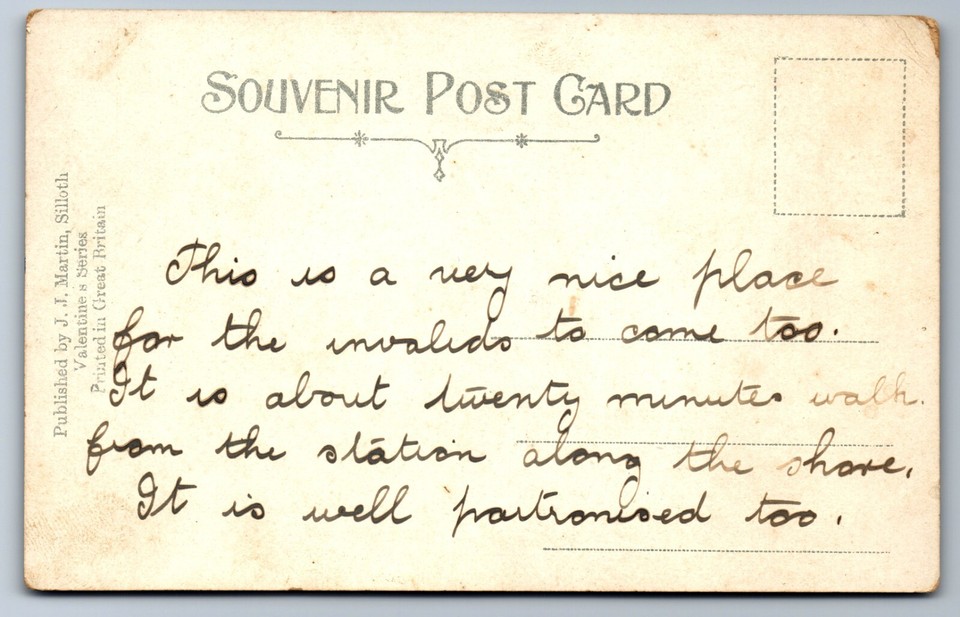 SOUVENIR POST CARD
Published by J. J. Martin, Silloth
Valentine's Series
Printed in Great Britain
This is a very nice place
for the invalids to come too.
It is about twenty minutes walk.
from the station along the shore.
It is well partronised too.